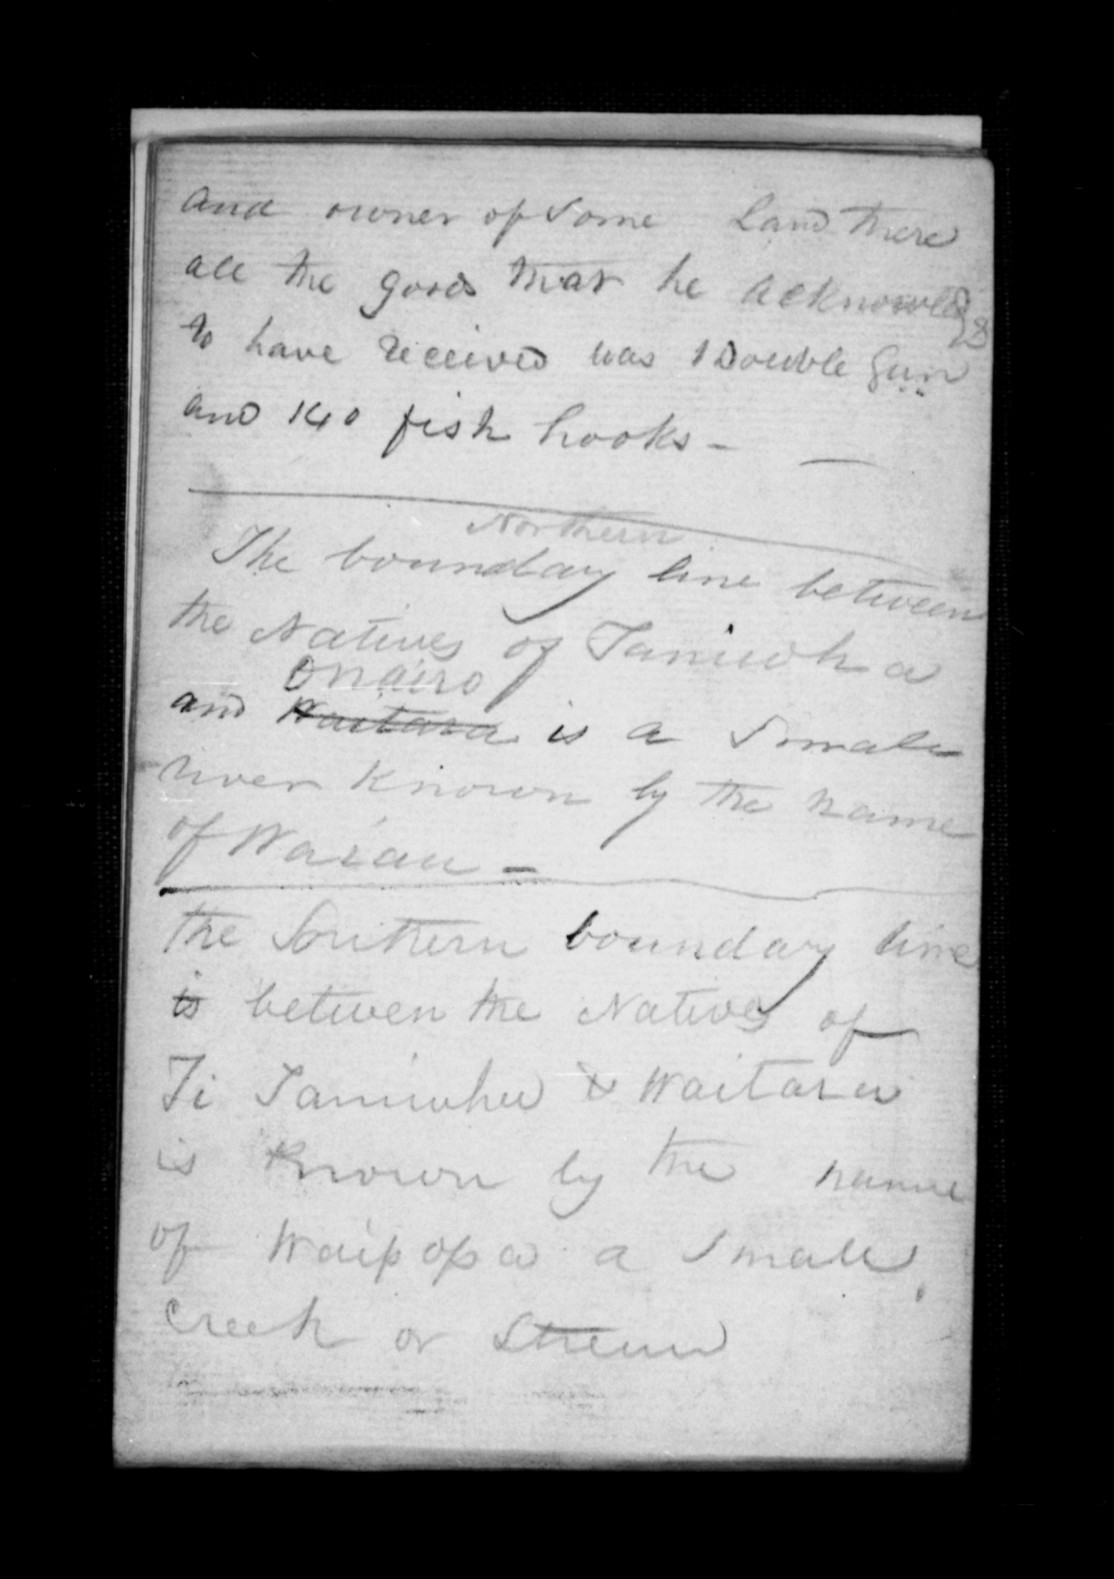 and owner of Some Land there
all the goods that he acknowledgd
to have received was 1 Double Gun
and 140 fish hooks —
Northern
The boundary line between
the Natives of Taniwha
Onairo
and Waitara is a Small
river Known by the name
of Waiau —
the Southern boundary line
is between the Natives of
Ti Taniwha & Waitara
is Known by the name
of Waipapa a Small
Creek or Stream